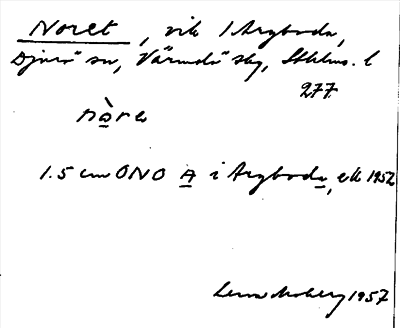 Noret, vik / Argboda,
Djurö sn, Värmdö skg, Sthlms. l
277
nòra
1.5 cm ONO A i Argboda, ek 1952
Lena Moberg 1957